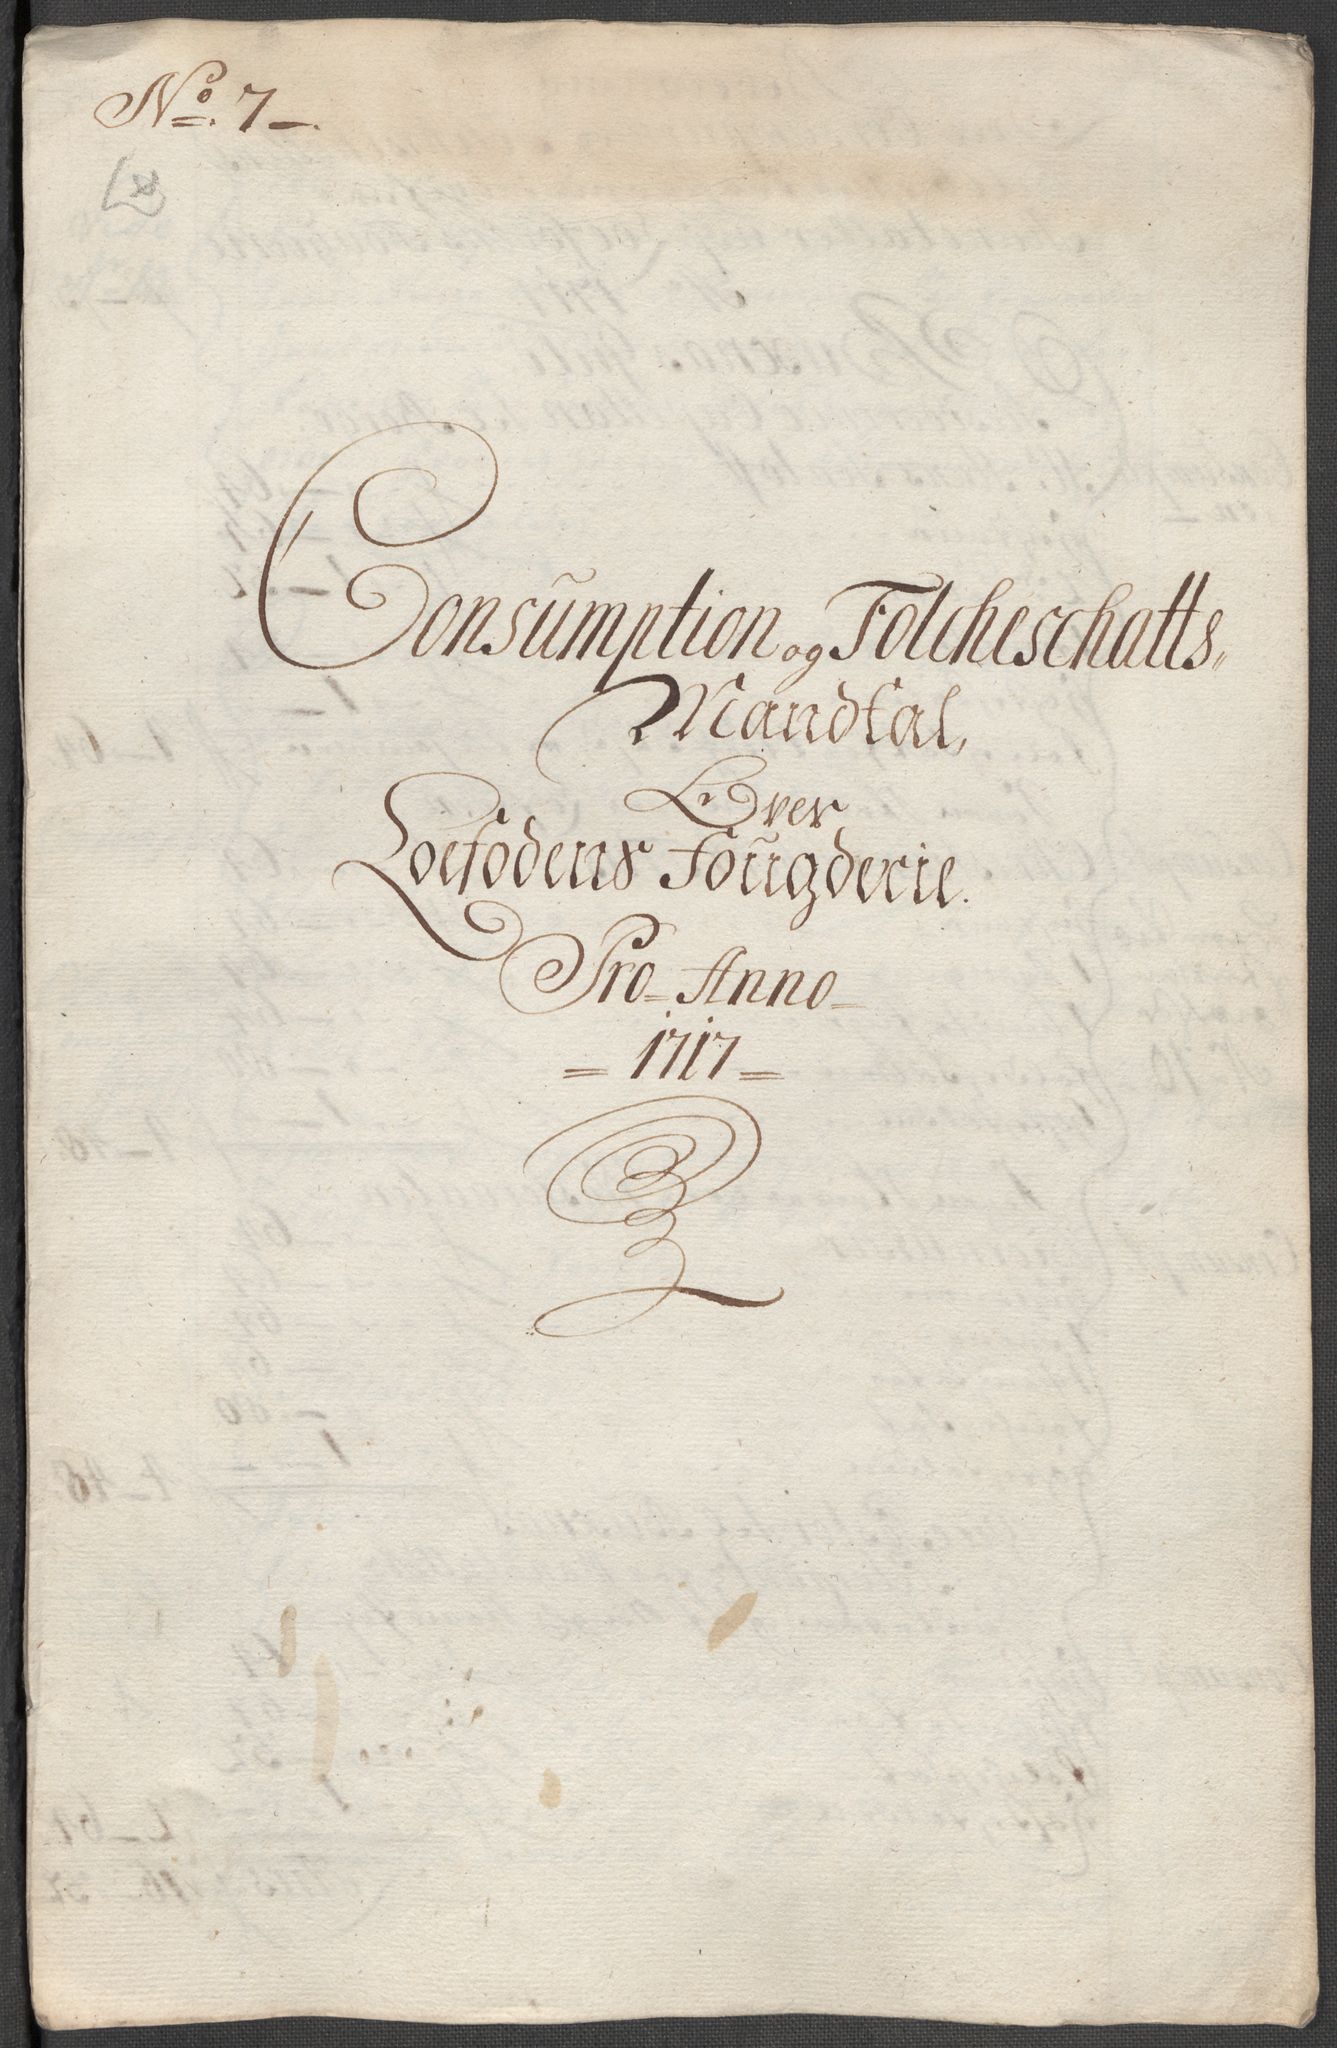 No. 7
Consumption og Folcheschatts
Mandtal,
Over
Loefodens Fougderie.
Pro Anno
1717